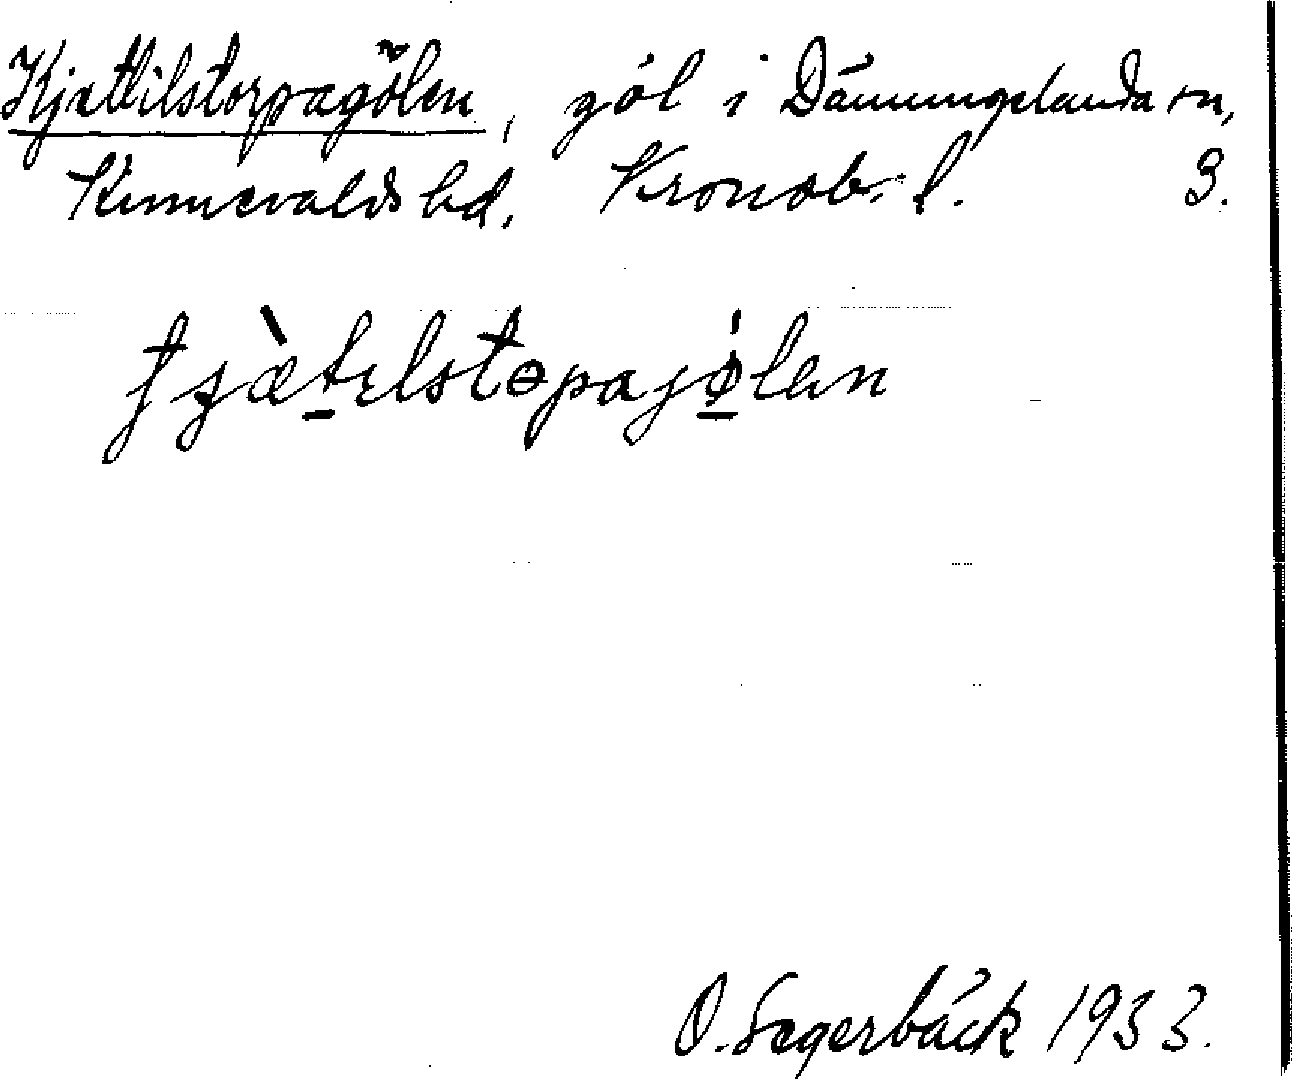 Kjättilstorpagölen, göl i Dänningelanda sn,
Kinnevalds hd, Kronob. l. 3.
tjæ̀telstɵpajǿlen
O. Segerbäck 1933.